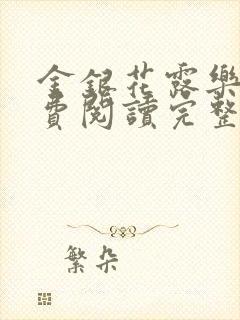 金銀花露樂
費閱讀完整
繁朵